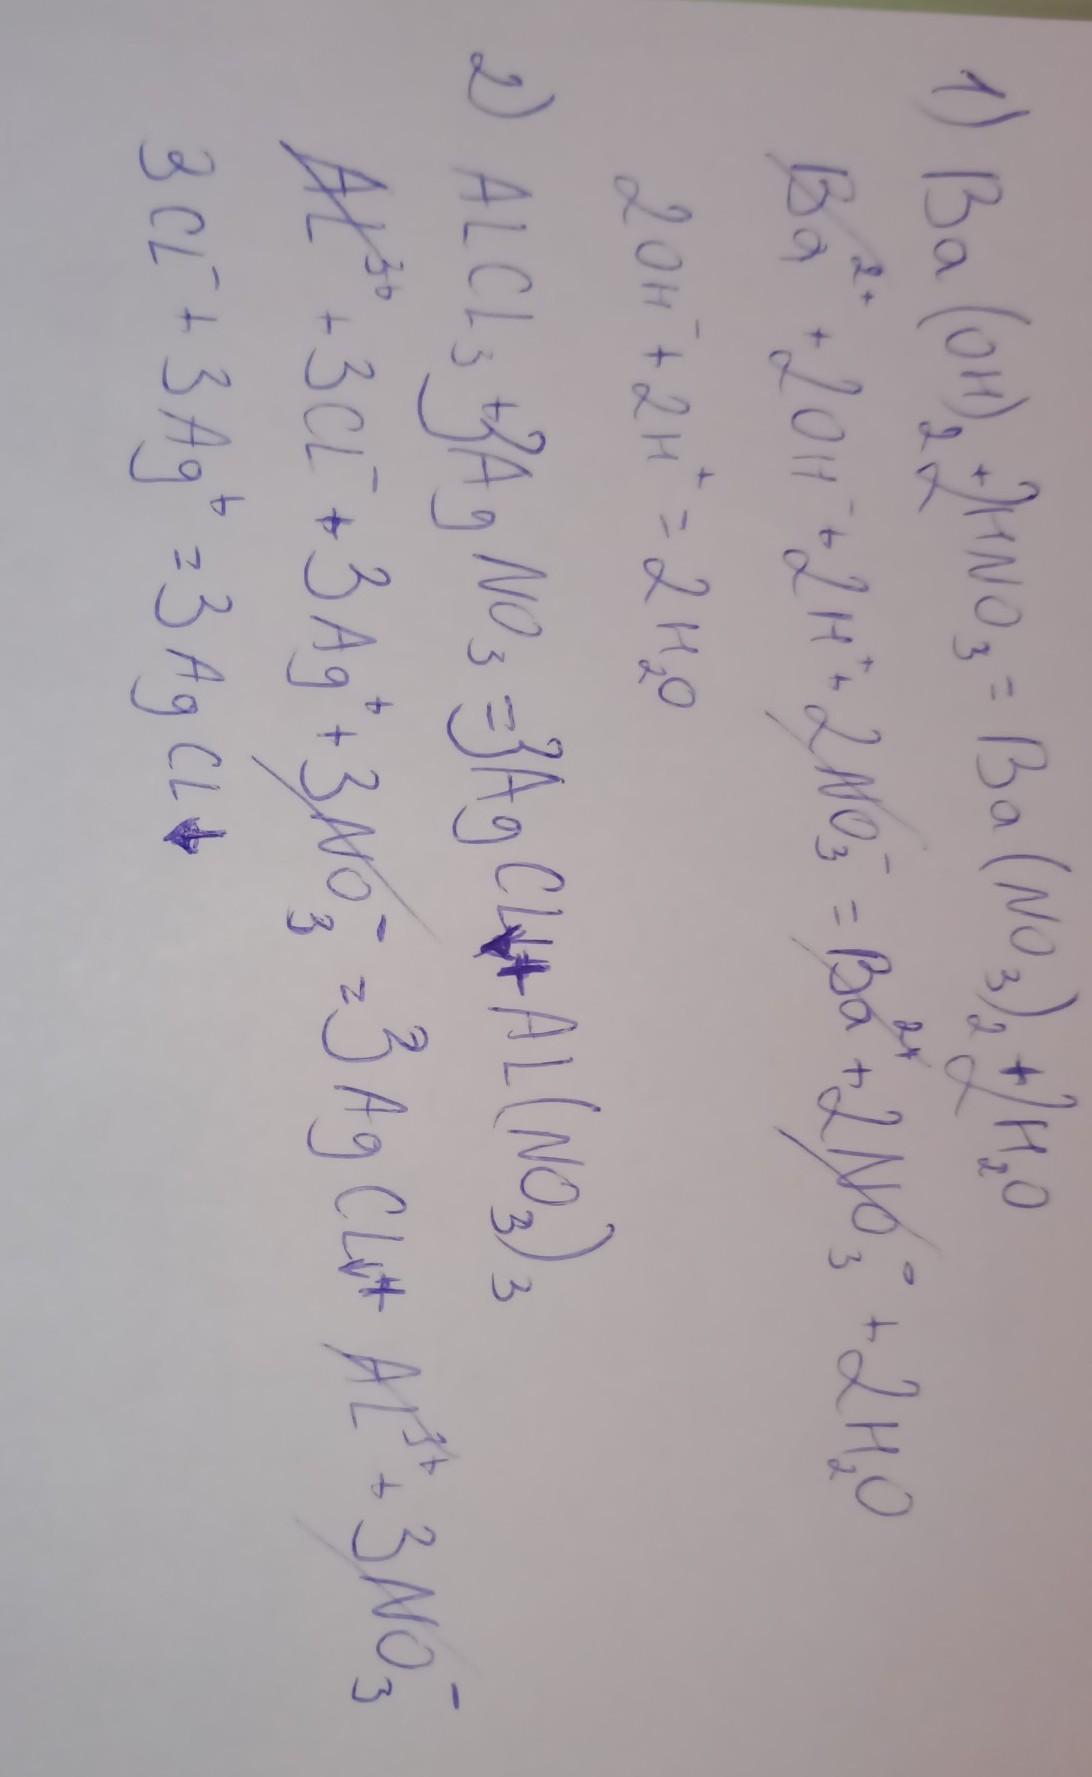 1) Ba(OH)₂ + 2HNO₃ = Ba(NO₃)₂ + 2H₂O
Ba²⁺ + 2OH⁻ + 2H⁺ + 2NO₃⁻ = Ba²⁺ + 2NO₃⁻ + 2H₂O
2OH⁻ + 2H⁺ = 2H₂O
2) AlCl₃ + 3AgNO₃ = 3AgCl↓ + Al(NO₃)₃
Al³⁺ + 3Cl⁻ + 3Ag⁺ + 3NO₃⁻ = 3AgCl↓ + Al³⁺ + 3NO₃⁻
3Cl⁻ + 3Ag⁺ = 3AgCl↓